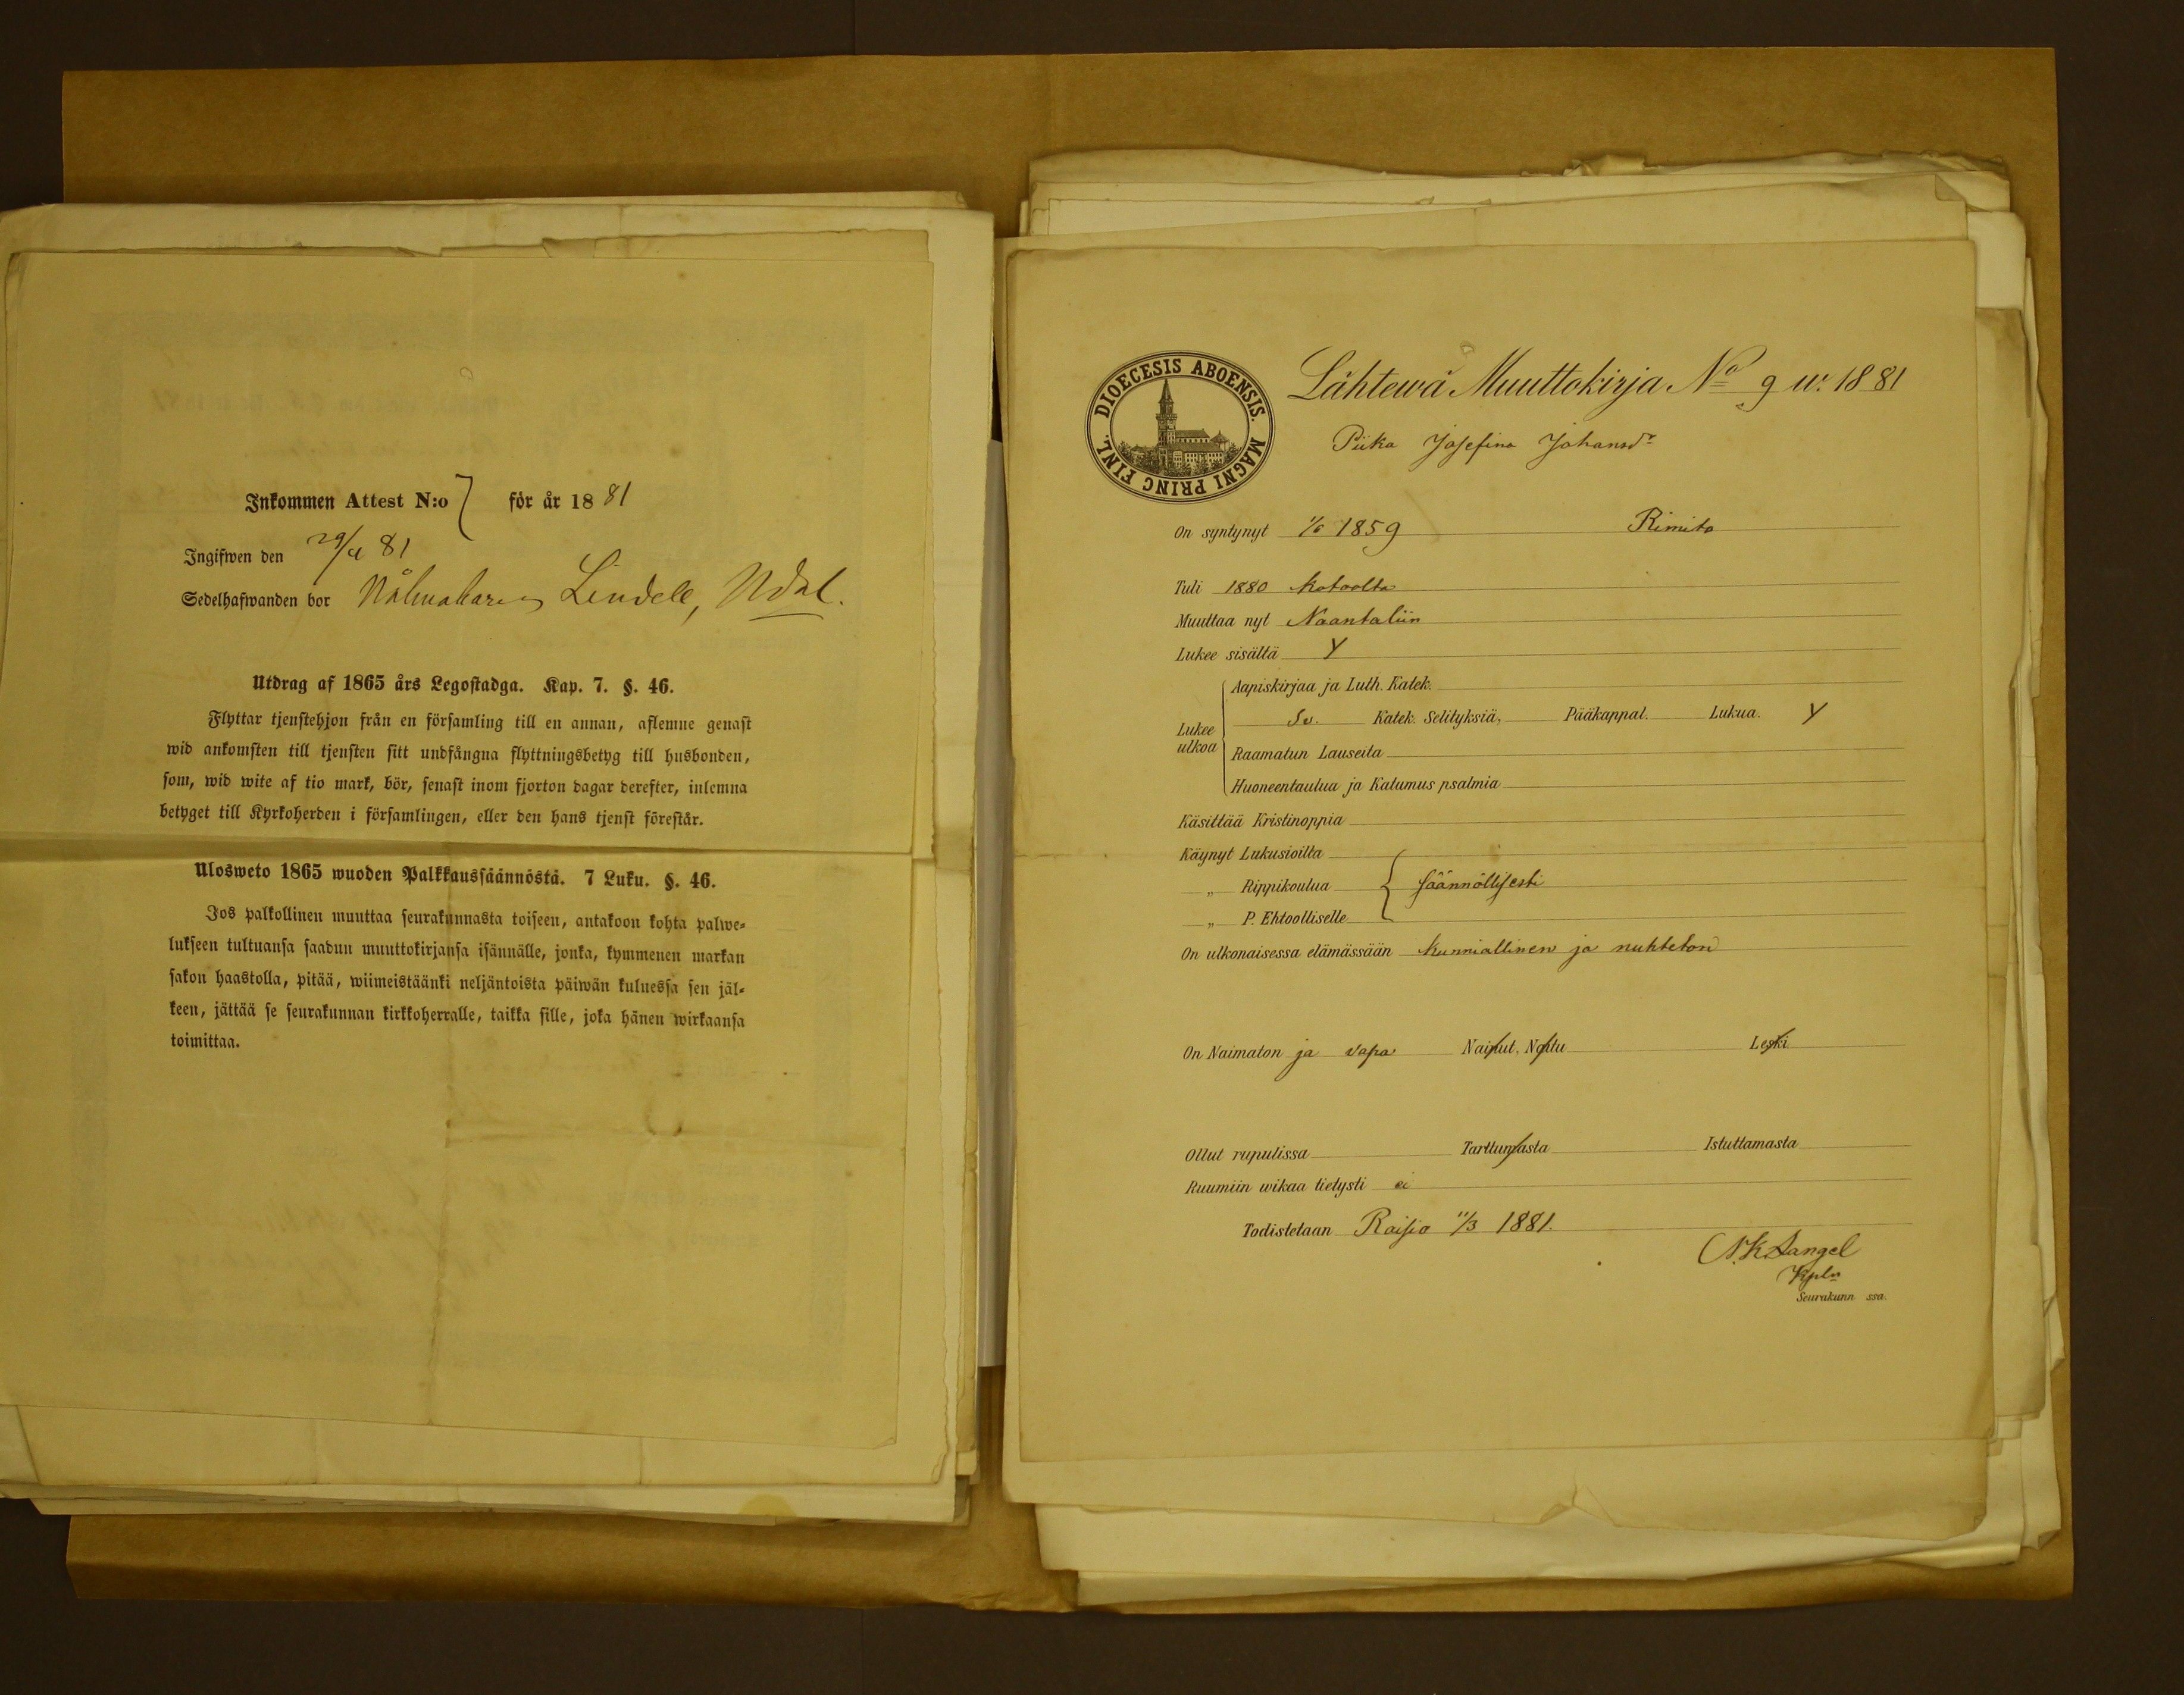 Inkommen Attest N:o 7 för år 1881
Ingifwen den 29/4 81
Sedelhafwanden bor Lindell, Ndal.
Utdrag af 1865 års Legostadga. Kap. 7. §. 46.
Flyttar tjenstehjon från en församling till en annan, aflemne genast
wid ankomsten till tjensten sitt undfångna flyttningsbetyg till husbonden,
som, wid wite af tio mark, bör, senast inom fjorton dagar derefter, inlemna
betyget till Kyrkoherden i församlingen, eller den hans tjenst förestår.
Ulosweto 1865 wuoden Palkkaussäännöstä. 7 Luku. §. 46.
Jos palkollinen muuttaa seurakunnasta toiseen, antakoon kohta palwe-
lukseen tultuansa saadun muuttokirjansa isännälle, jonka, kymmenen markan
sakon haastolla, pitää, wiimeistäänki neljäntoista päiwän kuluessa sen jäl-
keen, jättää se seurakunnan kirkkoherralle, taikka sille, joka hänen wirkaansa
toimittaa.
DIOECESIS ABOENSIS. MAGNI PRINC FINL.
Lähtewä Muuttokirja No 9 w. 1881
Piika Josefina Johansdr
On syntynyt 1/6 1859 Rimito
Tuli 1880 kotoolta
Muuttaa nyt Naantaliin
Lukee sisältä Y
Lukee ulkoa
Aapiskirjaa ja Luth. Katek.
Sv. Katek. Selityksiä, Pääkappal. Lukua. Y
Raamatun Lauseita
Huoneentaulua ja Katumus psalmia
Käsittää Kristinoppia
Käynyt Lukusioilta
„ Rippikoulua säännöllisesti
„ P. Ehtoolliselle
On ulkonaisessa elämässään kunniallinen ja nuhteton
On Naimaton ja vapa Nainut, Naitu Leski
Ollut rupulissa Tarttumasta Istuttamasta
Ruumiin wikaa tietysti ei
Todistetaan Raisio 11/3 1881.
Kpln
Seurakunn ssa.